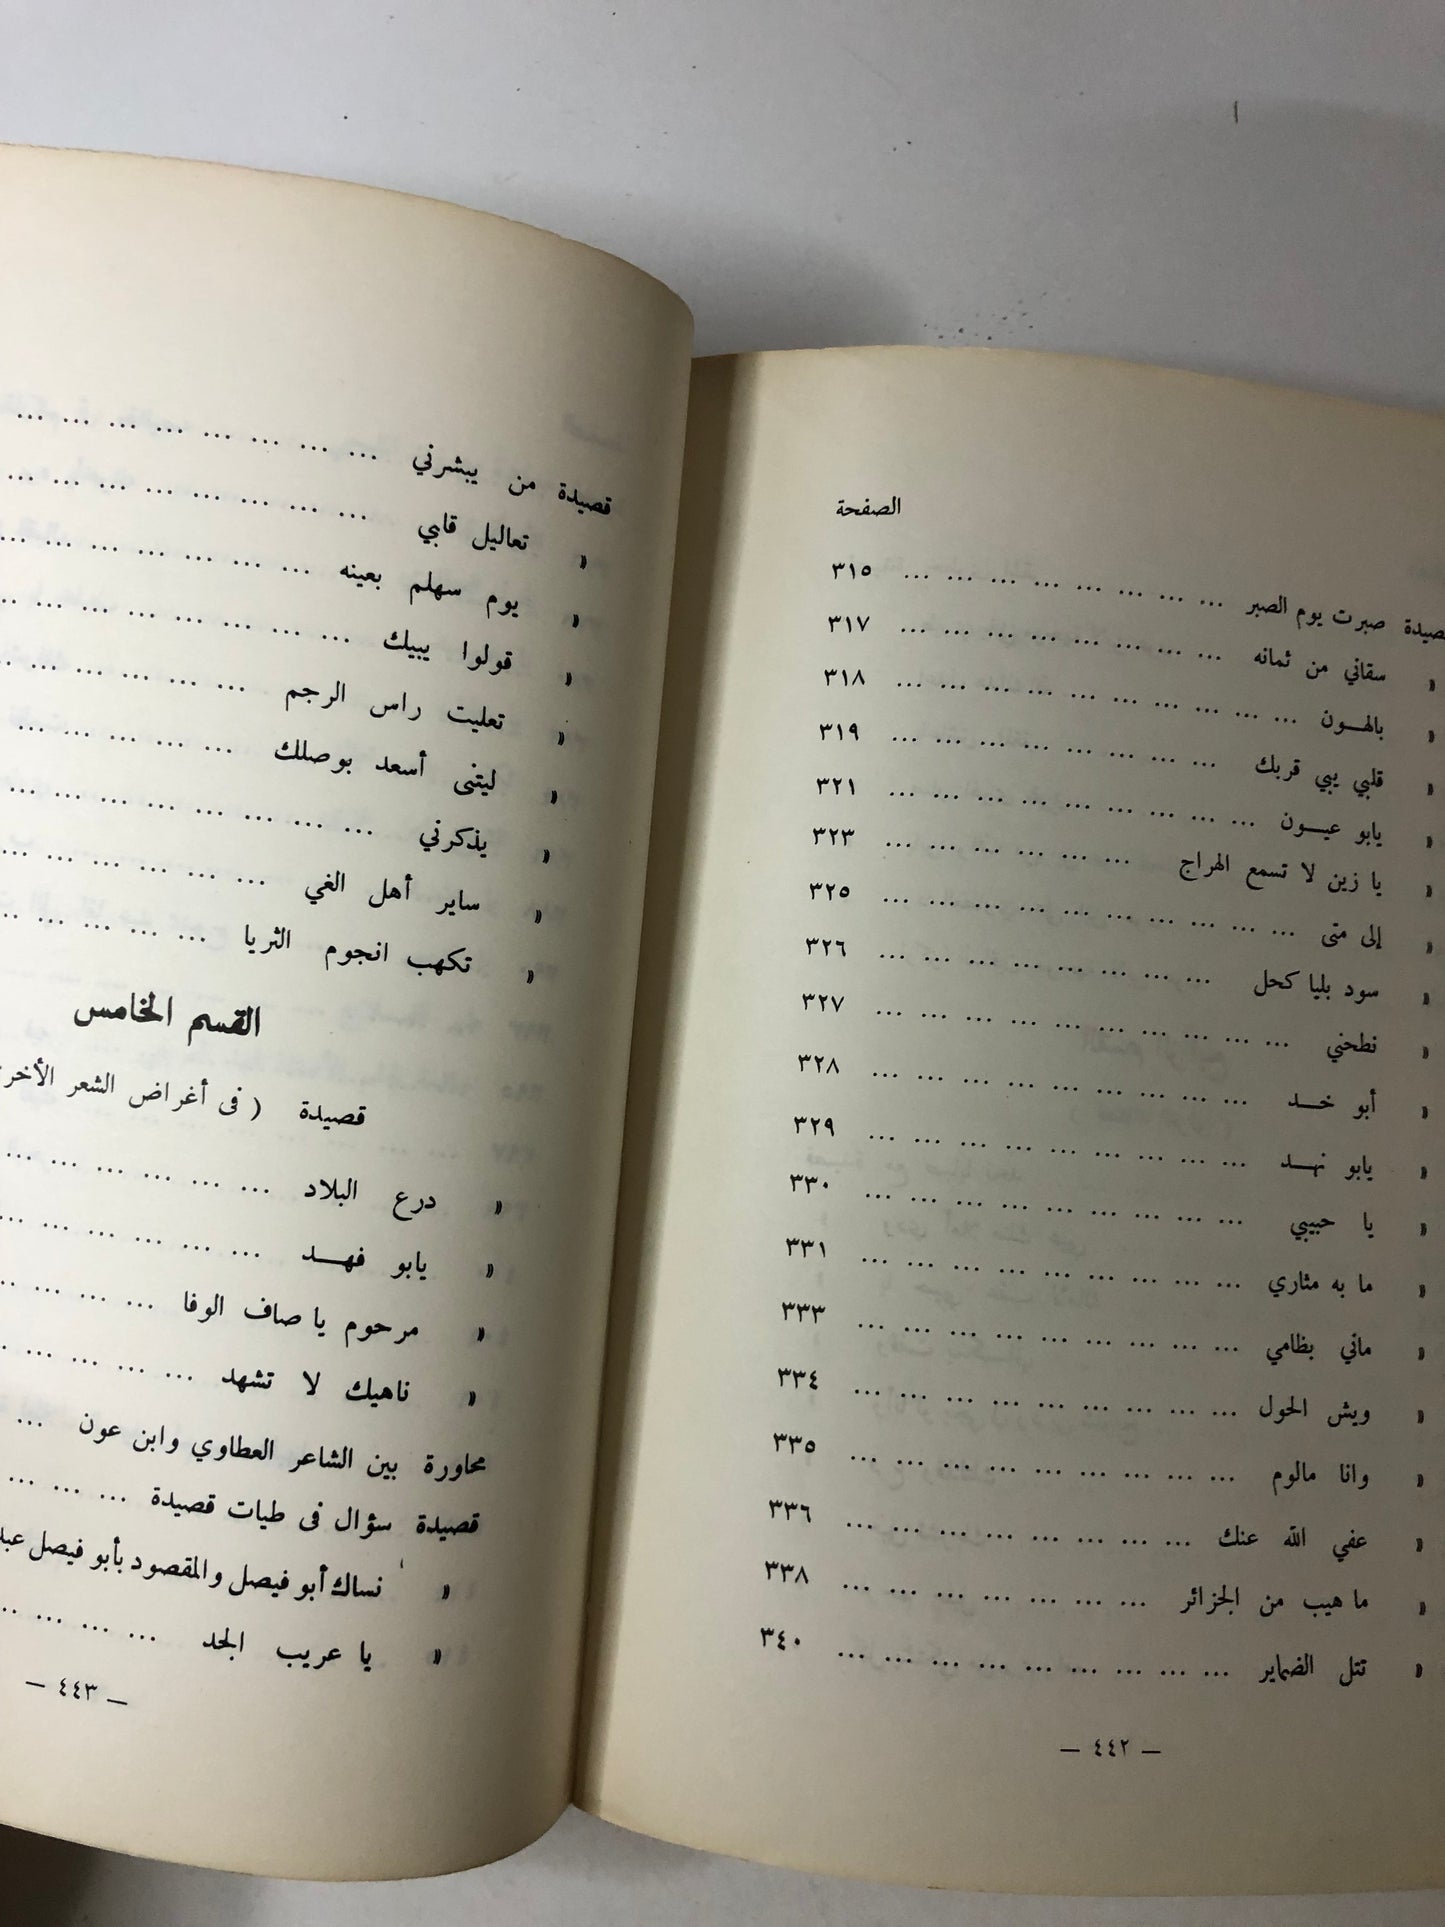 الصفحة
صبرت يوم الصبر ... ... ... ... ... ... ... ... ٣١٥
« سقاني من ثمانه ... ... ... ... ... ... ... ... ٣١٧
« بالهــون ... ... ... ... ... ... ... ... ... ... ٣١٨
« قلبي يبي قربك ... ... ... ... ... ... ... ... ٣١٩
« يابو عيــون ... ... ... ... ... ... ... ... ... ٣٢١
« يا زين لا تسمع الهراج ... ... ... ... ... ... ٣٢٣
« إلى متى ... ... ... ... ... ... ... ... ... ... ٣٢٥
« سود بليا كحل ... ... ... ... ... ... ... ... ٣٢٦
« نطحني ... ... ... ... ... ... ... ... ... ... ٣٢٧
« أبو خــد ... ... ... ... ... ... ... ... ... ٣٢٨
« يابو نهــد ... ... ... ... ... ... ... ... ... ٣٢٩
« يا حبيبي ... ... ... ... ... ... ... ... ... ٣٣٠
« ما به مثاري ... ... ... ... ... ... ... ... ... ٣٣١
« ماني بظامي ... ... ... ... ... ... ... ... ... ٣٣٣
« ويش الحول ... ... ... ... ... ... ... ... ... ٣٣٤
« وانا مالوم ... ... ... ... ... ... ... ... ... ٣٣٥
« عفي الله عنك ... ... ... ... ... ... ... ... ٣٣٦
« ما هيب من الجزائر ... ... ... ... ... ... ... ٣٣٨
« تتل الضماير ... ... ... ... ... ... ... ... ... ٣٤٠
— ٤٤٢ —
قصيدة من يبشرني ... ... ... ... ... ... ... ...
« تعاليل قابي ... ... ... ... ... ... ... ...
« يوم سهلم بعينه ... ... ... ... ... ... ...
« قولوا يبيك ... ... ... ... ... ... ... ...
« تعليت راس الرجم ... ... ... ... ... ...
« ليتنى أسعد بوصلك ... ... ... ... ...
« يذكرني ... ... ... ... ... ... ... ...
« ساير أهل الغي ... ... ... ... ... ...
« تكهب انجوم الثريا ... ... ... ... ...
القسم الخامس
قصيدة ( فى أغراض الشعر
« درع البلاد ... ... ... ... ... ...
« يابو فهــد ... ... ... ... ... ...
« مرحوم يا صاف الوفا ... ... ... ...
« ناهيك لا تشهد ... ... ... ... ...
محاورة بين الشاعر العطاوي وابن عون ...
قصيدة سؤال فى طيات قصيدة ... ... ...
« نساك أبو فيصل والمقصود بأبو فيصل
« يا عريب الجد ... ... ... ...
— ٤٤٣ —